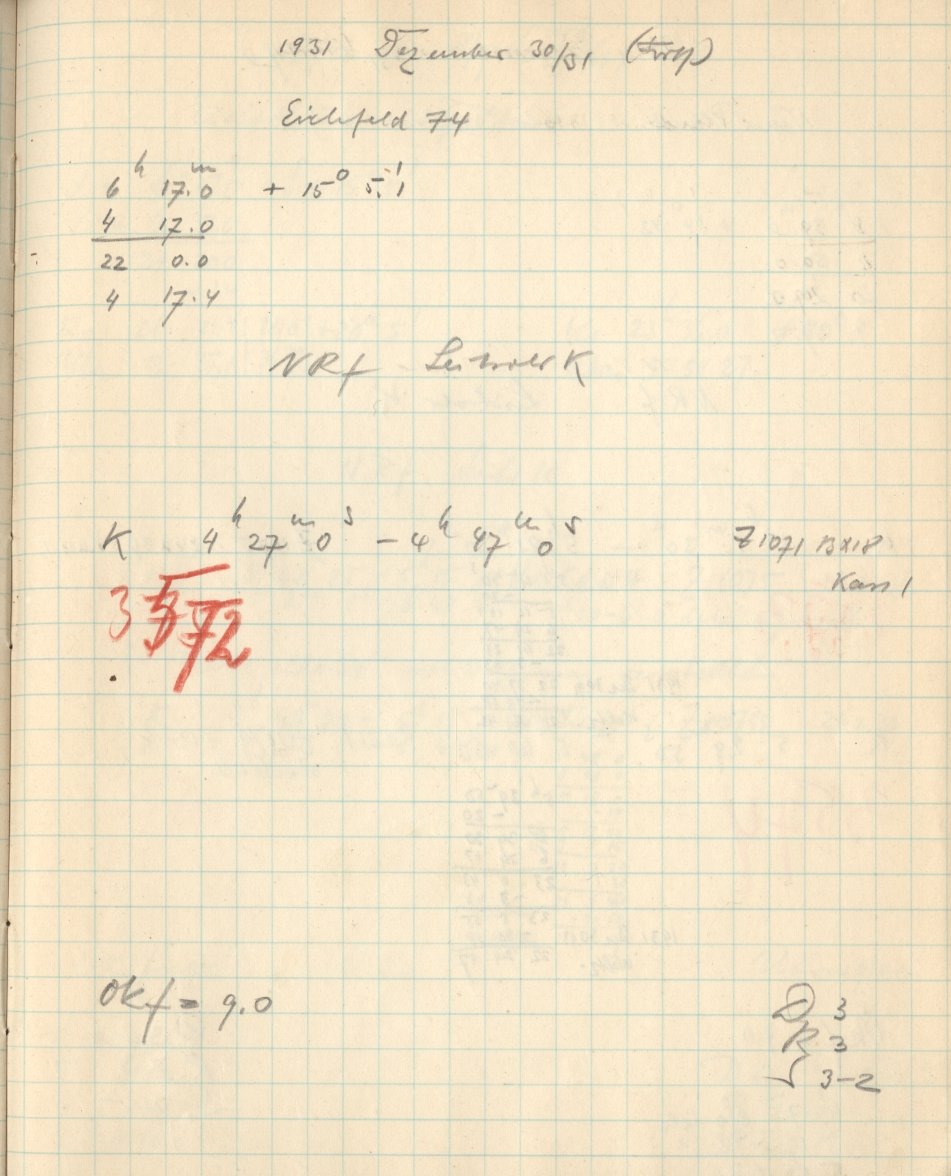 1931 Dezember 30/31
Eichfeld 74
6h 17m.0 + 15° 5'.1
4 17.0
22 0.0
4 17.4
NRf K
K 4h 27m 0s - 4h 47m 0s Z1071 B x 18
Kass 1
3572
Okf = 9.0
D 3
R 3
3-2